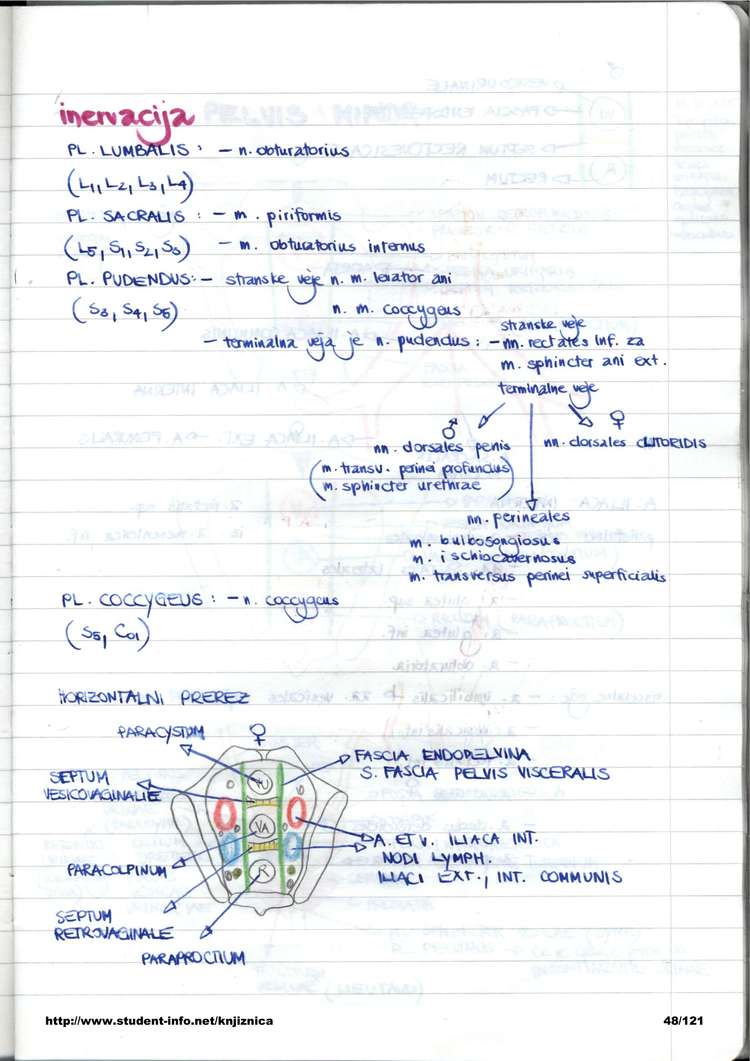 inervacija
PL. LUMBALIS: - n. obturatorius
(L1, L2, L3, L4)
PL. SACRALIS: - m. piriformis
(L5, S1, S2, S3) - m. obturatorius internus
PL. PUDENDUS: - stranske veje n. m. levator ani
(S3, S4, S5) n. m. coccygeus
- terminalna veja je n. pudendus: stranske veje
- nn. rectales inf. za
m. sphincter ani ext.
terminalne veje
♂ ♀
nn. dorsales penis nn. dorsales CLITORIDIS
(m. transv. perinei profundus)
(m. sphincter urethrae)
nn. perineales
m. bulbosongiosus
m. ischiocavernosus
m. transversus perinei superficialis
PL. COCCYGEUS: - n. coccygeus
(S5, Co1)
HORIZONTALNI PREREZ
PARACYSTIUM ♀
FASCIA ENDOPELVINA
S. FASCIA PELVIS VISCERALIS
SEPTUM
VESICOVAGINALE
VU
VA
R
A. ET V. ILIACA INT.
NODI LYMPH.
ILIACI EXT., INT. COMMUNIS
PARACOLPINUM
SEPTUM
RETROVAGINALE
PARAPROCTIUM
http://www.student-info.net/knjiznica 48/121